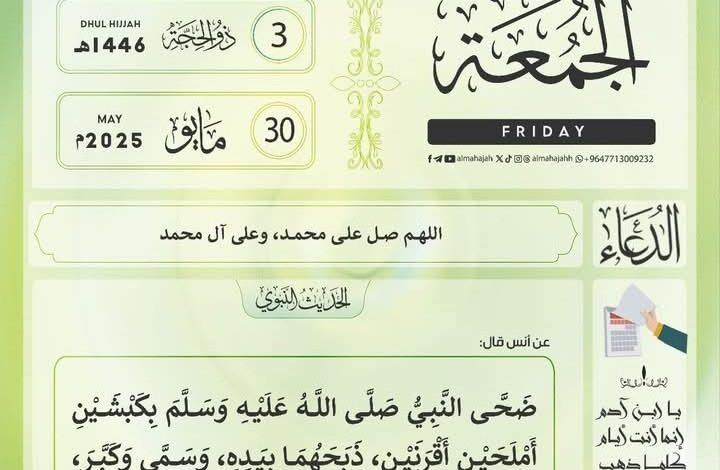 الجمعة
FRIDAY
almahajah almahajahh +9647713009232
3 ذو الحجة DHUL HIJJAH 1446هـ
30 مايو MAY 2025م
الدعاء
اللهم صل على محمد، وعلى آل محمد
الحديث النبوي
عن أنس قال:
ضَحَّى النَّبِيُّ صَلَّى اللهُ عَلَيْهِ وَسَلَّمَ بِكَبْشَيْنِ
أَمْلَحَيْنِ أَقْرَنَيْنِ، ذَبَحَهُمَا بِيَدِهِ، وَسَمَّى وَكَبَّرَ،
يا ابن آدم
إنما أنت أيام
كلما ذهب